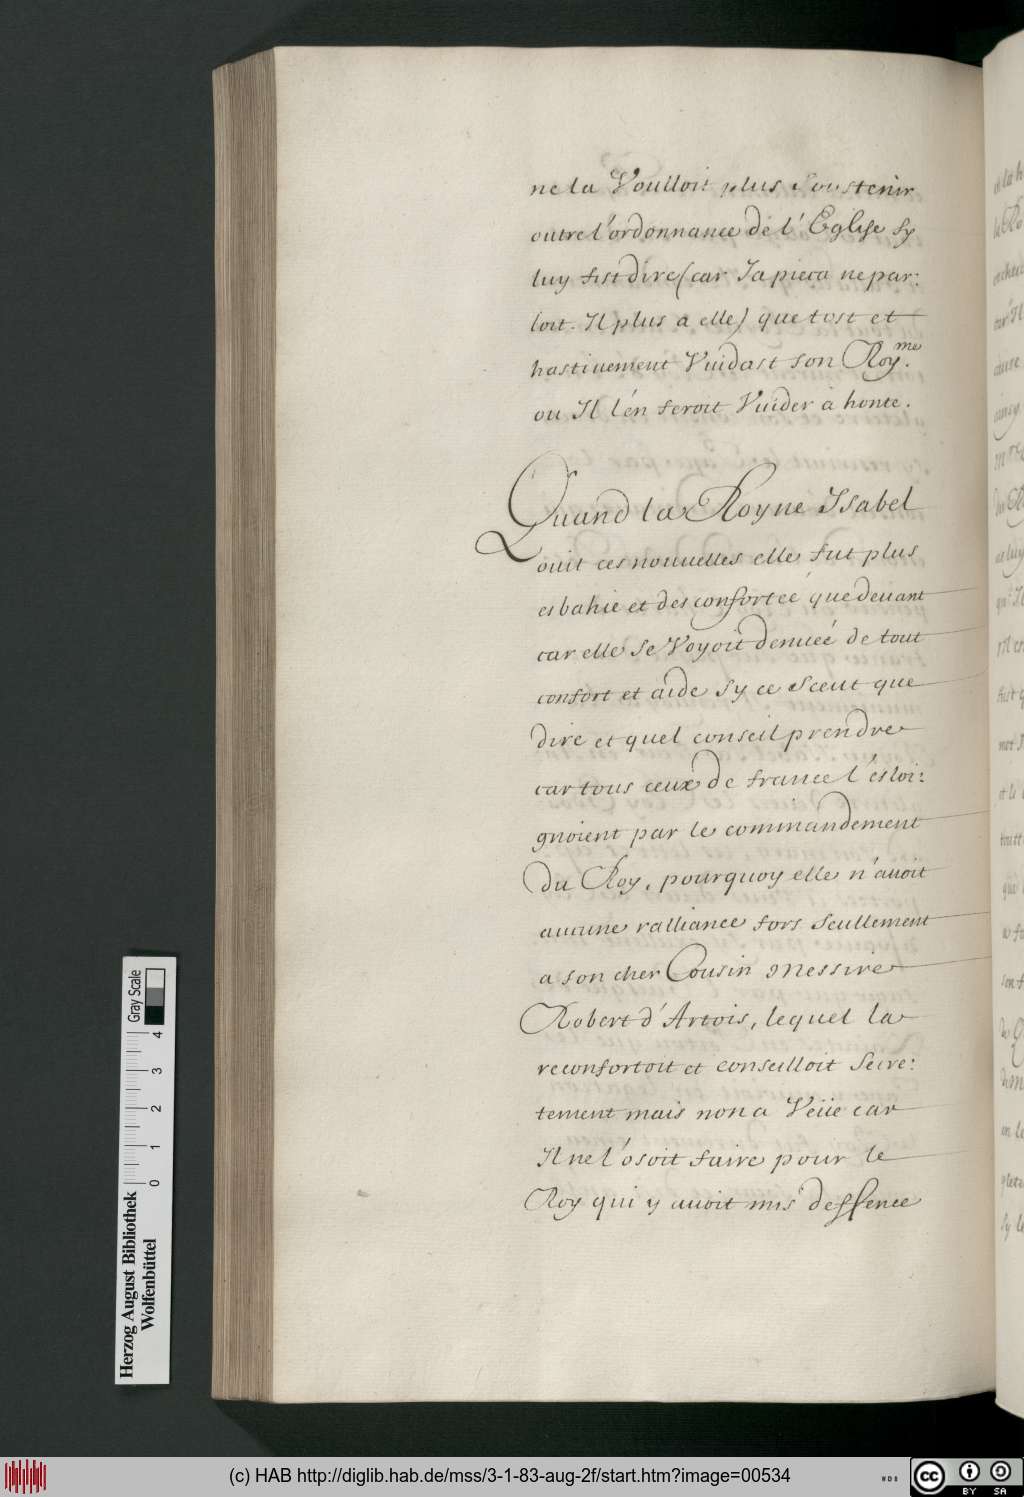 ne la Voulloit plus soustenir
outre l'ordonnance de l'Eglise sy
luy fist dire (car Ja pieca ne par:
loit. Il plus a elle) que tost et
hastiuement Vuidast son Roy.me
ou Il l'en feroit Vuider à honte.
Quand la Royne Isabel
ouit ces nouuelles elle fut plus
esbahie et desconfortée que deuant
car elle se Voyoit denuée de tout
confort et aide sy ce sceut que
dire et quel conseil prendre
car tous ceux de france l'esloi:
gnoient par le commandement
du Roy, pourquoy elle n'auoit
aucune ralliance fors seullement
a son cher Cousin Messire
Robert d'Artois, lequel la
reconfortoit et conseilloit secre:
tement mais non a Veüe car
Il ne l'osoit faire pour le
Roy qui y auoit mis deffence
Gray Scale
0 1 2 3 4
Herzog August Bibliothek
Wolfenbüttel
(c) HAB http://diglib.hab.de/mss/3-1-83-aug-2f/start.htm?image=00534
WDB
cc BY SA